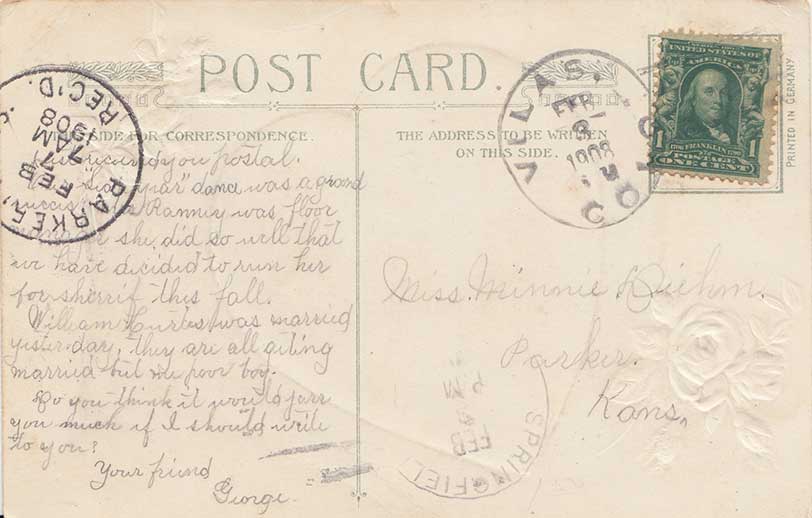 POST CARD.
SIDE FOR CORRESPONDENCE.
THE ADDRESS TO BE WRITTEN
ON THIS SIDE.
PRINTED IN GERMANY
UNITED STATES OF
AMERICA
1706 FRANKLIN 1790
1 POSTAGE 1
ONE CENT
VILAS,
FEB
8
1908
M
COLO
PARKER,
FEB
7 AM
1908
REC'D.
SPRINGFIEL
FEB
M
received you postal.
year" dance was a grand
Ranney was floor
she did so well that
we have decided to run her
for sherrif this fall.
William Curtes was married
yester-day, they are all geting
married but we poor boy.
Do you think it would jarr
you much if I should write
to you?
Your friend
George.
Miss. Minnie Diehm.
Parker.
Kans.